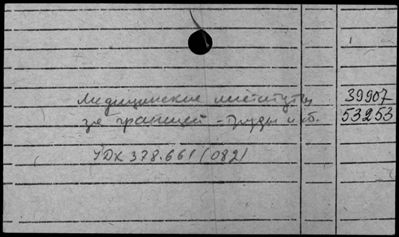 Медицинские институты
за границей - Труды и сб.
УДК 378.661 (082)
39907
53253